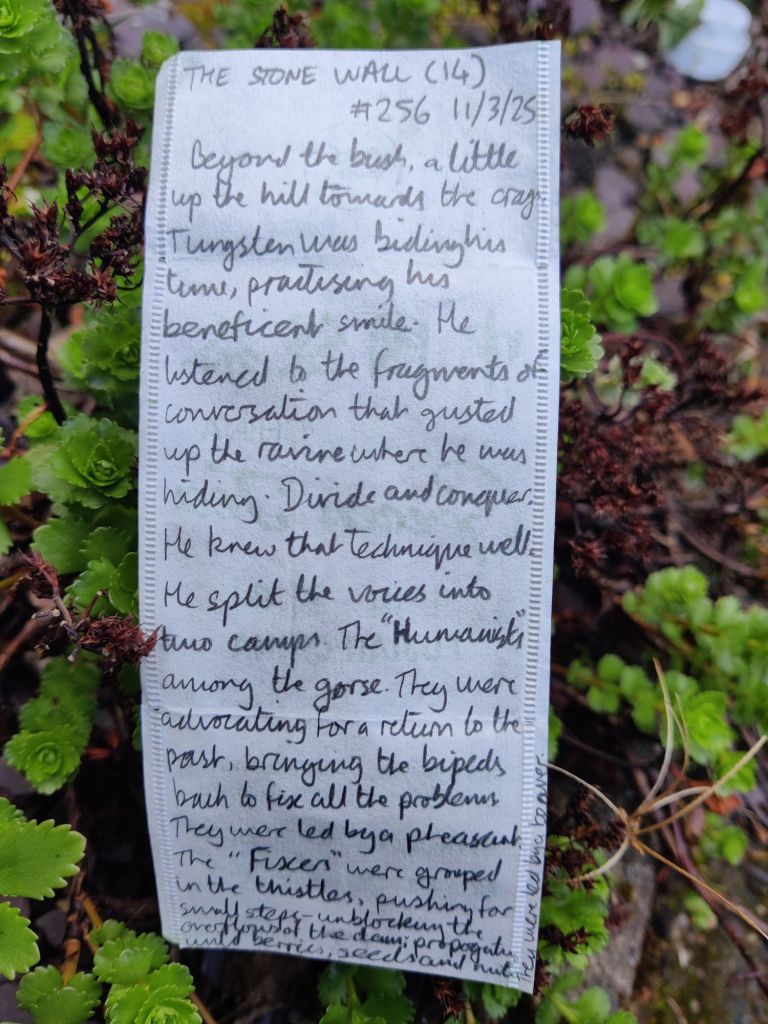 THE STONE WALL (14)
#256 11/3/25
Beyond the bush, a little
up the hill towards the crag
Tungsten was biding his
time, practising his
beneficent smile. He
listened to the fragments of
conversation that gusted
up the ravine where he was
hiding. Divide and conquer.
He knew that technique well.
He split the voices into
two camps. The "Humanists"
among the gorse. They were
advocating for a return to the
past, bringing the bipeds
back to fix all the problems
They were led by a pheasant.
The "Fixers" were grouped
in the thistles, pushing for
small steps - unblocking the
overflows of the dam; propogating
wild berries, seeds and nuts
They were led by a beaver.